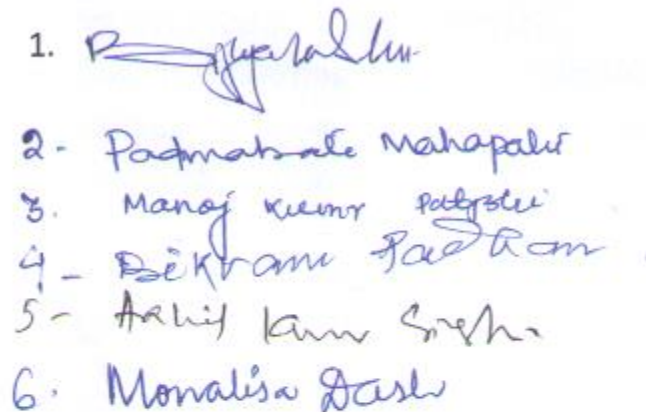 1.
2- Padmabati Mahapatr
3. Manoj Kumr
4- Bikram Padhan
5- Akhil Kumr Singh
6. Monalisa Dash